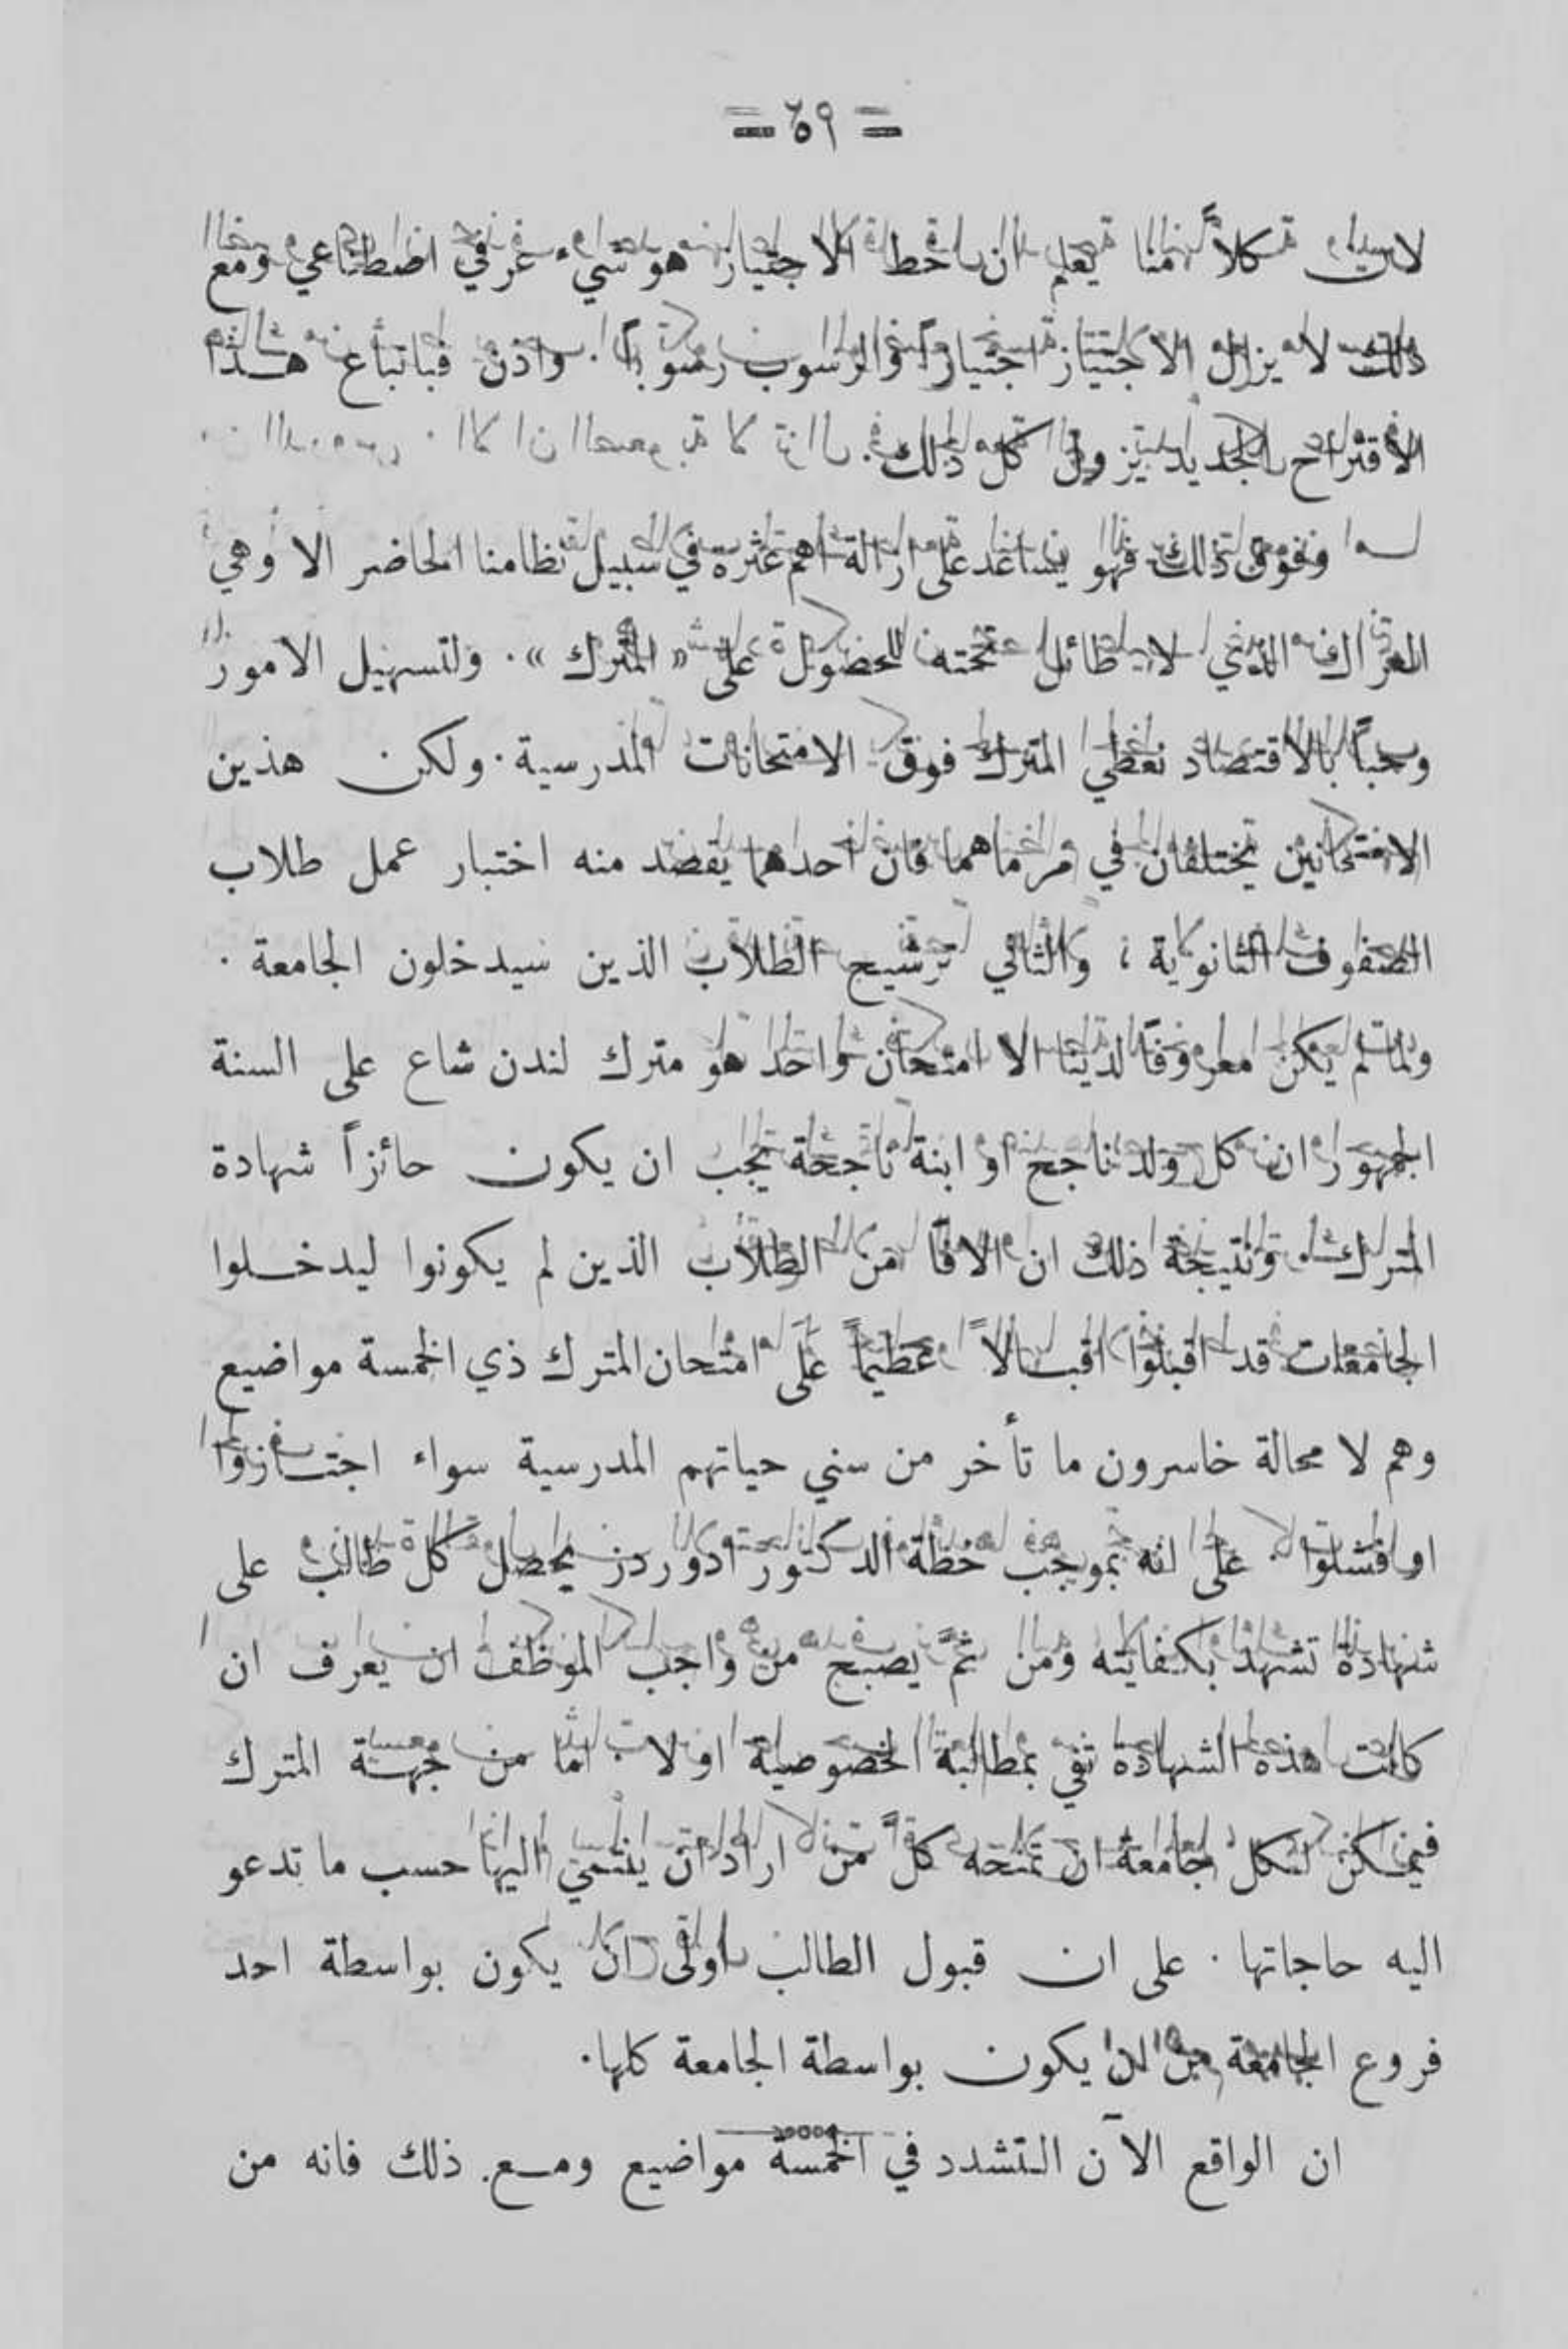 = ٥٩ =
لان كلاً منا يعلم ان خط الاجتياز هو شيء عرفي اصطناعي ومع
ذلك لا يزال الاجتياز اجتيازاً والرسوب رسوباً. واذن فباتباع هذا
الاقتراح الجديد يزول كل ذلك.
وفوق ذلك فهو يساعد على ازالة اهم عثرة في سبيل نظامنا الحاضر الا وهي
العراك الذي لا طائل تحته للحصول على «المترك». ولتسهيل الامور
وحباً بالاقتصاد نعطي المترك فوق الامتحانات المدرسية. ولكن هذين
الامتحانين يختلفان في مرماهما فان احدهما يقصد منه اختبار عمل طلاب
الصفوف الثانوية، والثاني ترشيح الطلاب الذين سيدخلون الجامعة.
ولما لم يكن معروفاً لدينا الا امتحان واحد هو مترك لندن شاع على السنة
الجمهور ان كل ولد ناجح او ابنة ناجحة يجب ان يكون حائزاً شهادة
المترك. ونتيجة ذلك ان الافاً من الطلاب الذين لم يكونوا ليدخلوا
الجامعات قد اقبلوا اقبالاً عظيماً على امتحان المترك ذي الخمسة مواضيع
وهم لا محالة خاسرون ما تأخر من سني حياتهم المدرسية سواء اجتازوا
او فشلوا. على انه بموجب خطة الدكتور ادوردز يحصل كل طالب على
شهادة تشهد بكفايته ومن ثمَّ يصبح من واجب الموظف ان يعرف ان
كانت هذه الشهادة تفي بمطالبة الخصوصية او لا. اما من جهة المترك
فيمكن لكل جامعة ان تمنحه كلَّ من اراد ان ينتمي اليها حسب ما تدعو
اليه حاجاتها. على ان قبول الطالب اولى ان يكون بواسطة احد
فروع الجامعة من ان يكون بواسطة الجامعة كلها.
ان الواقع الآن التشدد في الخمسة مواضيع ومع. ذلك فانه من